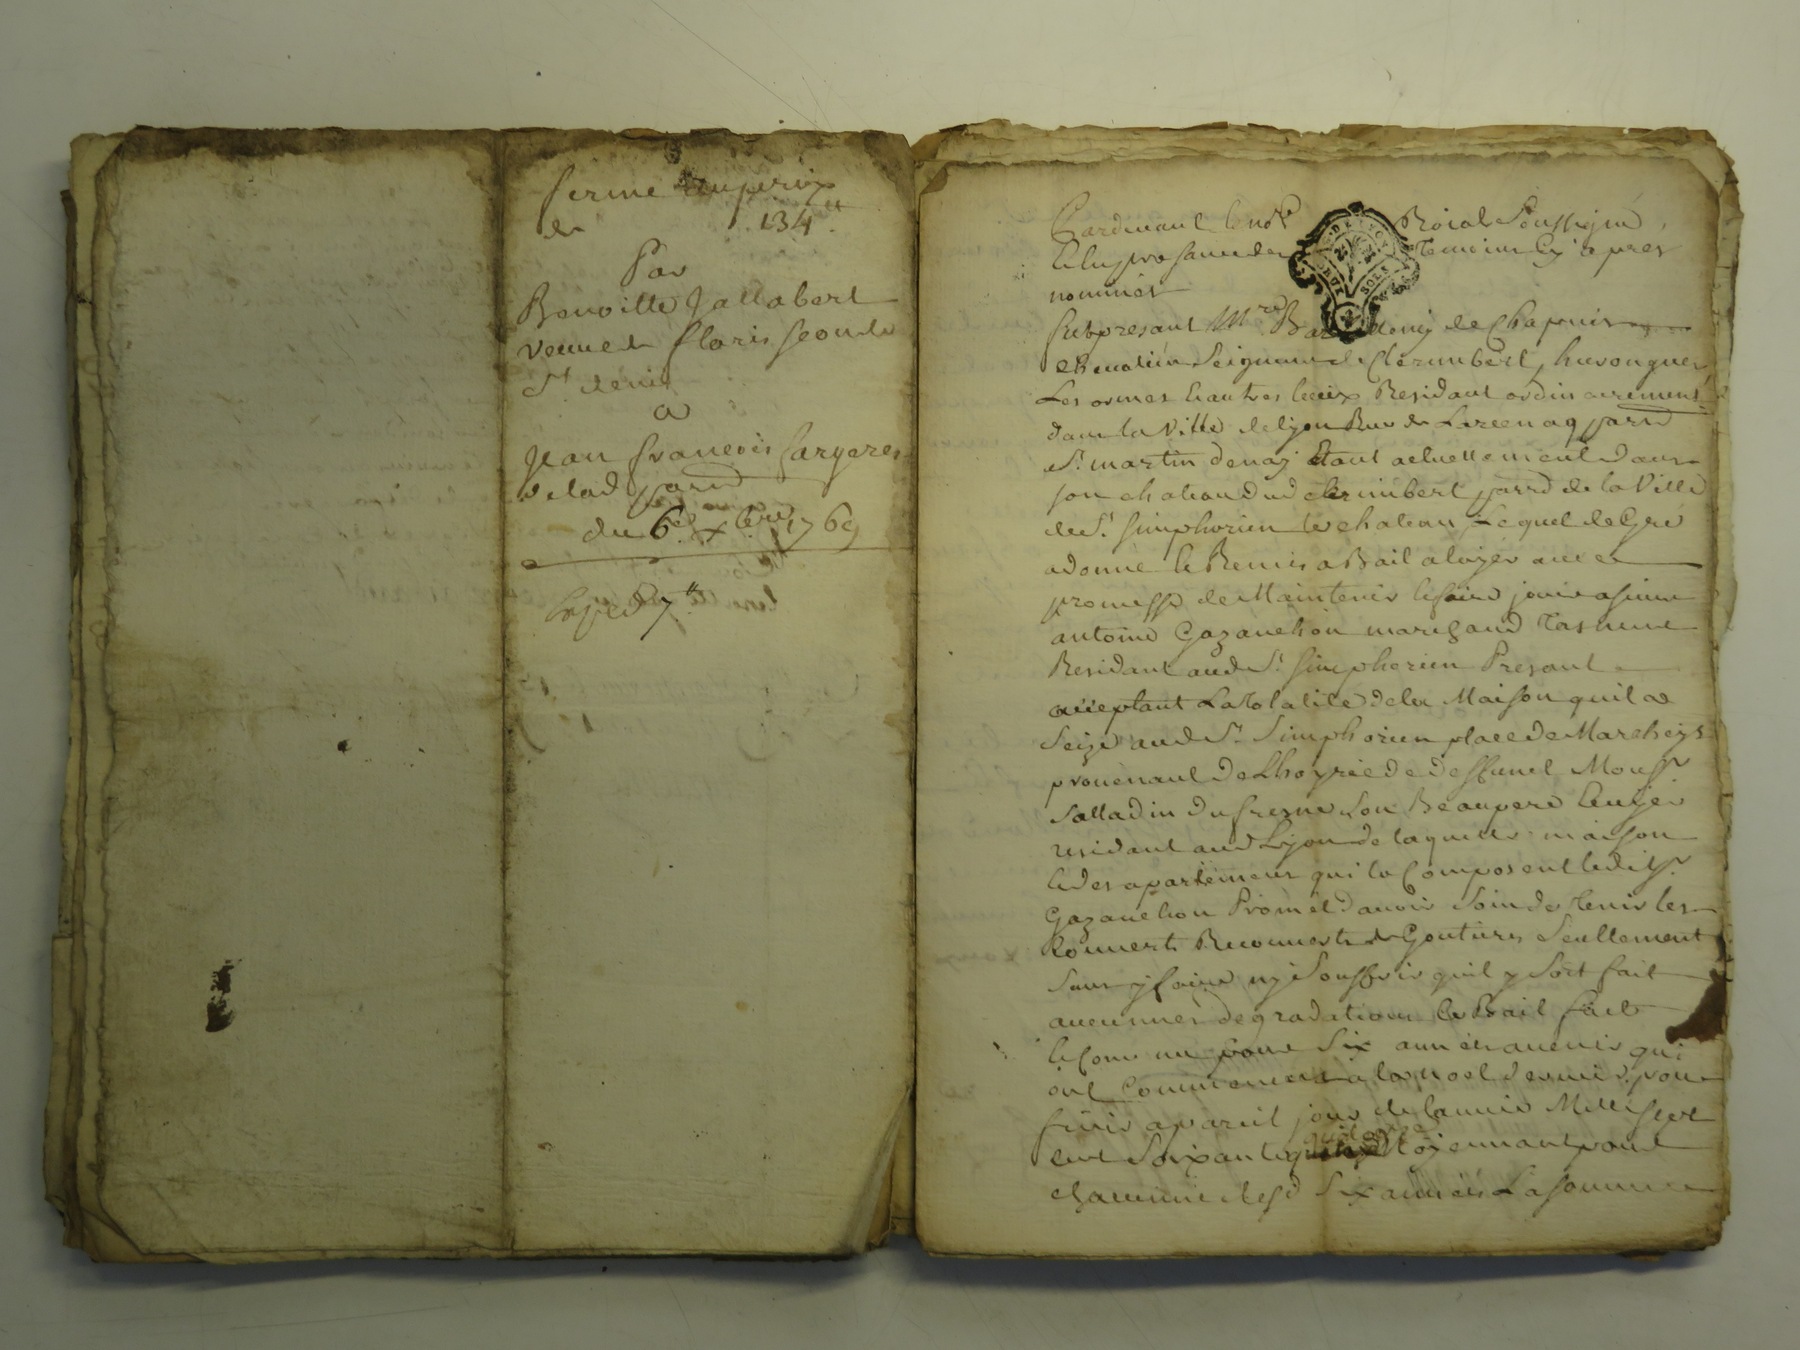 ferme au prix
de 134ᵗᵗ
Par
Benoitte Jallabert
veuve de floris
Sᵗ denis
a
Jean francois fargeres
de lad parr
du 6ᵉ xbre 1769
Exped 7ᵗᵗ
Pardevant le noʳᵉ Roial Soussigné
et en presance des Temoins Cy apres
nommés
fut presant Mʳᵉ de Chapuis
Seigneur de Clerimbert,
Les ormes et autres lieux Residant ordinairement
dans la Ville de lyon Rue de parr
Sᵗ martin denay Etant actuellement dans
son chateau dud clerimbert parr de la Ville
de Sᵗ Simphorien le chateau Lequel de Gré
a donné et Remis a Bail a loyer avec
promesse de Maintenir et faire jouir a sieur
antoine Gazanchon marchand
Residant aud Sᵗ Simphorien Presant
acceptant La totalité de la Maison quil a
Seize aud Sᵗ Simphorien place de Marcheys
provenant de Lhoyrie de deffunct Monsʳ
Salladin dufresne son Beaupere Ecuyer
residant aud Lyon de laquelle maison
et des apartemens qui la Composent ledit Sʳ
Gazanchon Promet davoir Soin de Tenir les
Couverts Recouverts de Goutieres Seullement
Sans y faire ny Souffrir quil y Soit fait
aucunnes degradations le Bail fait
et Convenu pour Six années avenir qui
ont Commencées a la noel dernier pour
finir a pareil jour de lannée Mille Sept
cent Soixante quatorze Moyennant pour
chacunne desd Six années La somme
DEUX SOLS